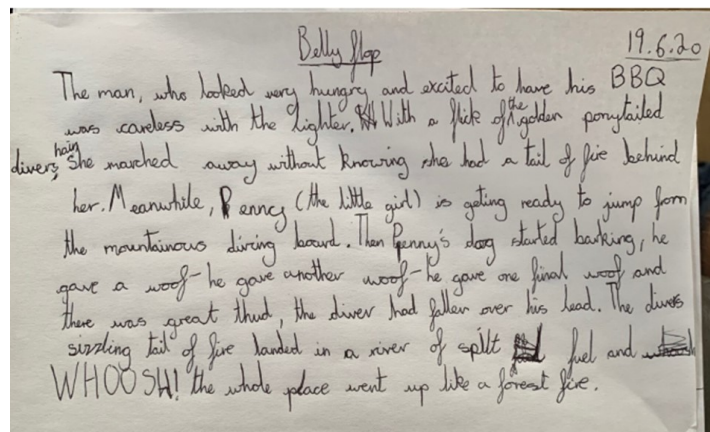 Belly flop
19.6.20
The man, who looked very hungry and excited to have his BBQ
was careless with the lighter. With a flick of the golden ponytailed
divers hair, she marched away without knowing she had a tail of fire behind
her. Meanwhile, Penney (the little girl) is geting ready to jump from
the mountainous diving board. Then Penny's dog started barking, he
gave a woof-he gave another woof-he gave one final woof and
there was great thud, the diver had fallen over his lead. The divers
sizzling tail of fire landed in a river of spilt fuel and
WHOOSH! the whole place went up like a forest fire.